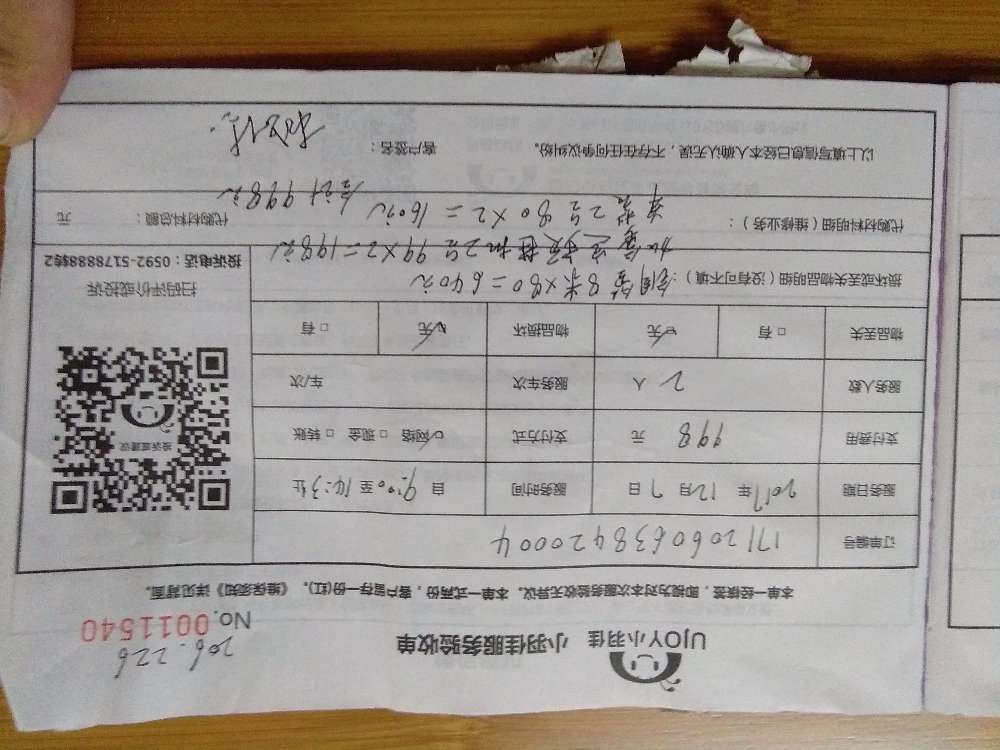 UJOY小羽佳 小羽佳服务验收单
206.226
No. 0011540
本单一经核签,即视为对本次服务验收无异议。本单一式两份,客户留存一份(红)。《维保须知》详见背面。
订单编号 1712060638420004
服务日期 2017年12月9日 服务时间 自9:00至14:3止
支付费用 998元 支付方式 ☑网络 □现金 □转账
服务人数 2人 服务车次 车/次
物品丢失 □有 ☑无 物品损坏 ☑无 □有
投诉或建议
扫码评价或投诉
投诉电话:0592-5178888转2
损坏或丢失物品明细(没有可不填):铜管8米×80=640元
2号99×2=198元
代购材料明细(维修业务): 2号80×2=160元 合计998元
代购材料总额: 元
以上填写信息已经本人确认无误,不存在任何争议纠纷。 客户签名: